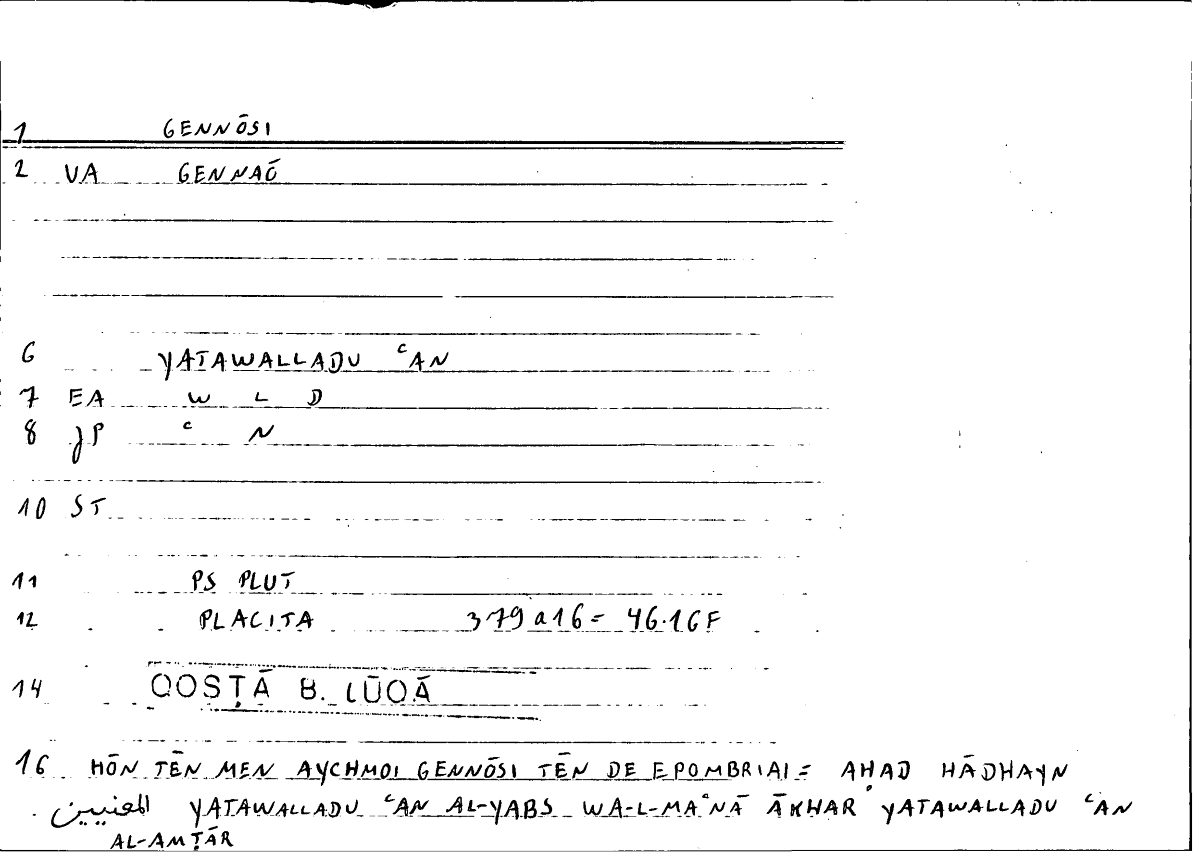 1 GENNŌSI
2 VA GENNAŌ
6 YATAWALLADU ᶜAN
7 EA W L D
8 JP ᶜ N
10 ST
11 PS PLUT
12 PLACITA 379a16 = 46.16F
14 QOSṬĀ B. LŪQĀ
16 HŌN TĒN MEN AYCHMOI GENNŌSI TĒN DE EPOMBRIAI = AHAD HĀDHAYN
المعنيين YATAWALLADU ᶜAN AL-YABS WA-L-MAᶜNĀ ĀKHAR YATAWALLADU ᶜAN
AL-AMṬĀR